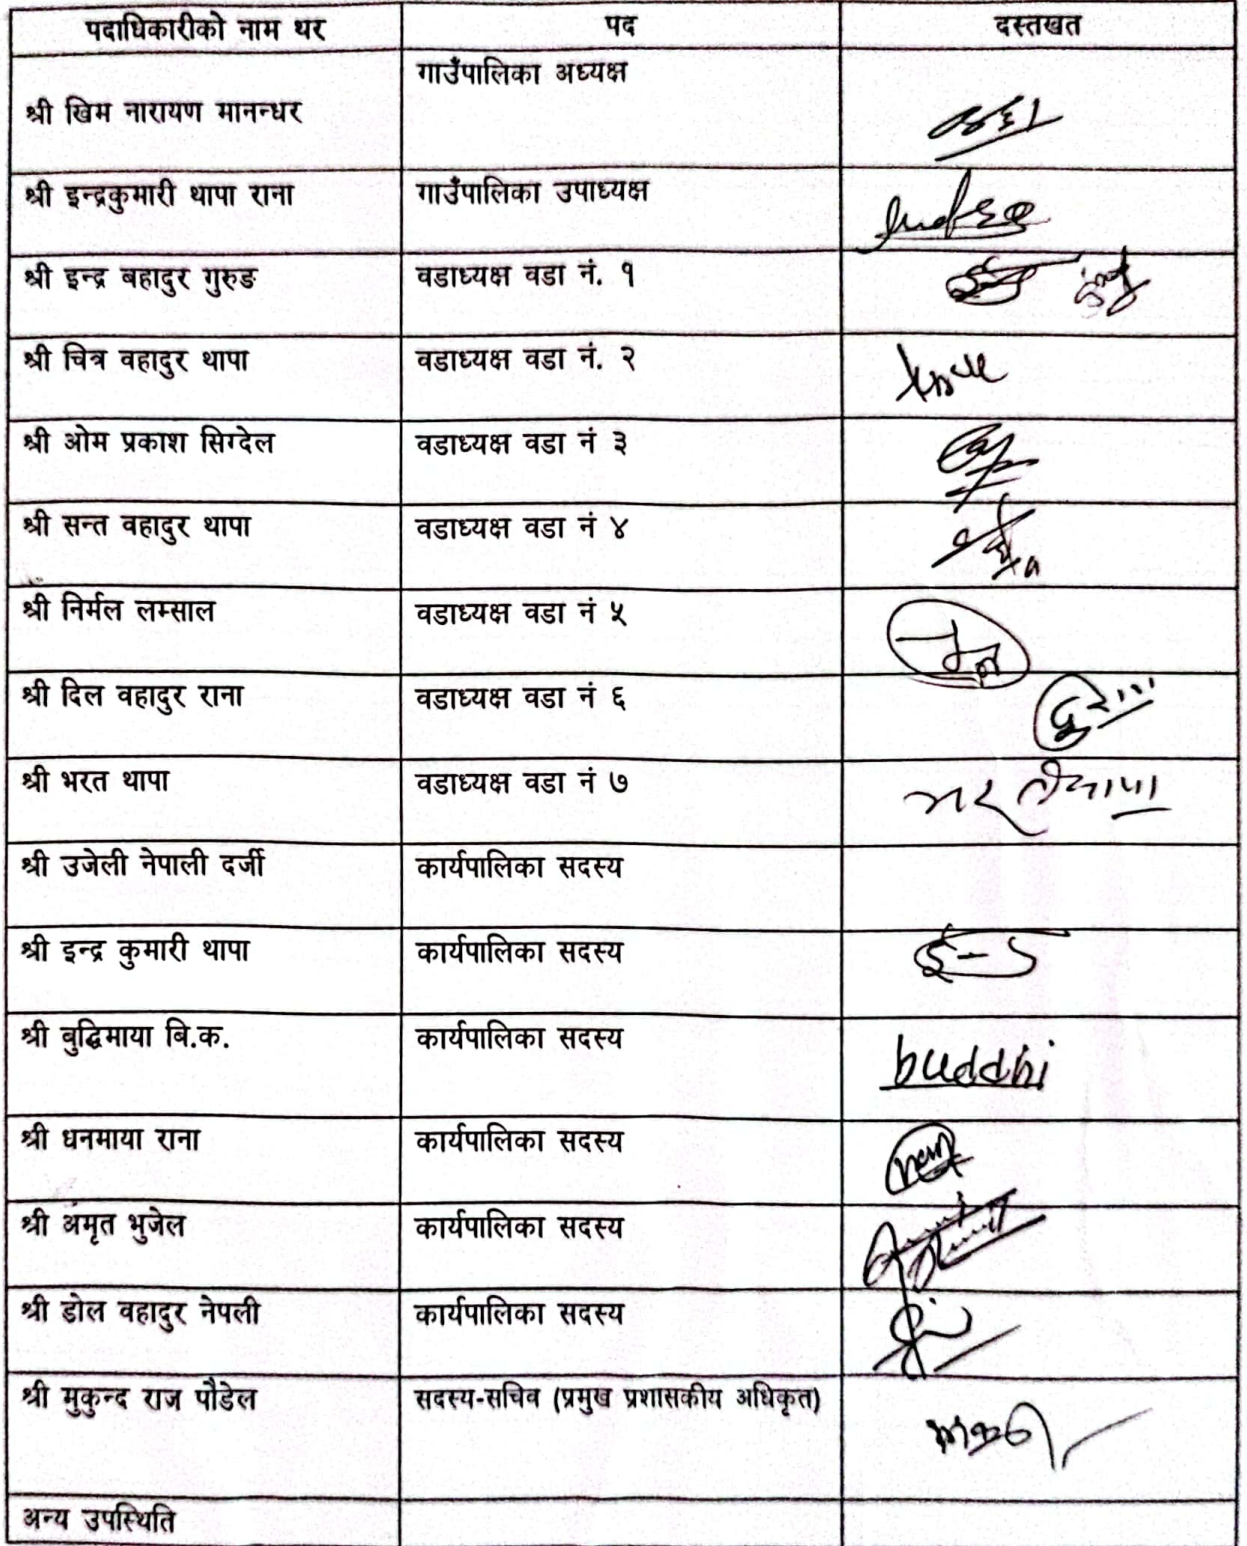 पदाधिकारीको नाम थर पद दस्तखत
गाउँपालिका अध्यक्ष
श्री खिम नारायण मानन्धर
श्री इन्द्रकुमारी थापा राना गाउँपालिका उपाध्यक्ष
श्री इन्द्र बहादुर गुरुङ वडाध्यक्ष वडा नं. १
श्री चित्र वहादुर थापा वडाध्यक्ष वडा नं. २
श्री ओम प्रकाश सिग्देल वडाध्यक्ष वडा नं ३
श्री सन्त वहादुर थापा वडाध्यक्ष वडा नं ४
श्री निर्मल लम्साल वडाध्यक्ष वडा नं ५
श्री दिल वहादुर राना वडाध्यक्ष वडा नं ६
श्री भरत थापा वडाध्यक्ष वडा नं ७
श्री उजेली नेपाली दर्जी कार्यपालिका सदस्य
श्री इन्द्र कुमारी थापा कार्यपालिका सदस्य
श्री बुद्धिमाया बि.क. कार्यपालिका सदस्य buddhi
श्री धनमाया राना कार्यपालिका सदस्य
श्री अमृत भुजेल कार्यपालिका सदस्य
श्री डोल वहादुर नेपली कार्यपालिका सदस्य
श्री मुकुन्द राज पौडेल सदस्य-सचिव (प्रमुख प्रशासकीय अधिकृत)
अन्य उपस्थिति